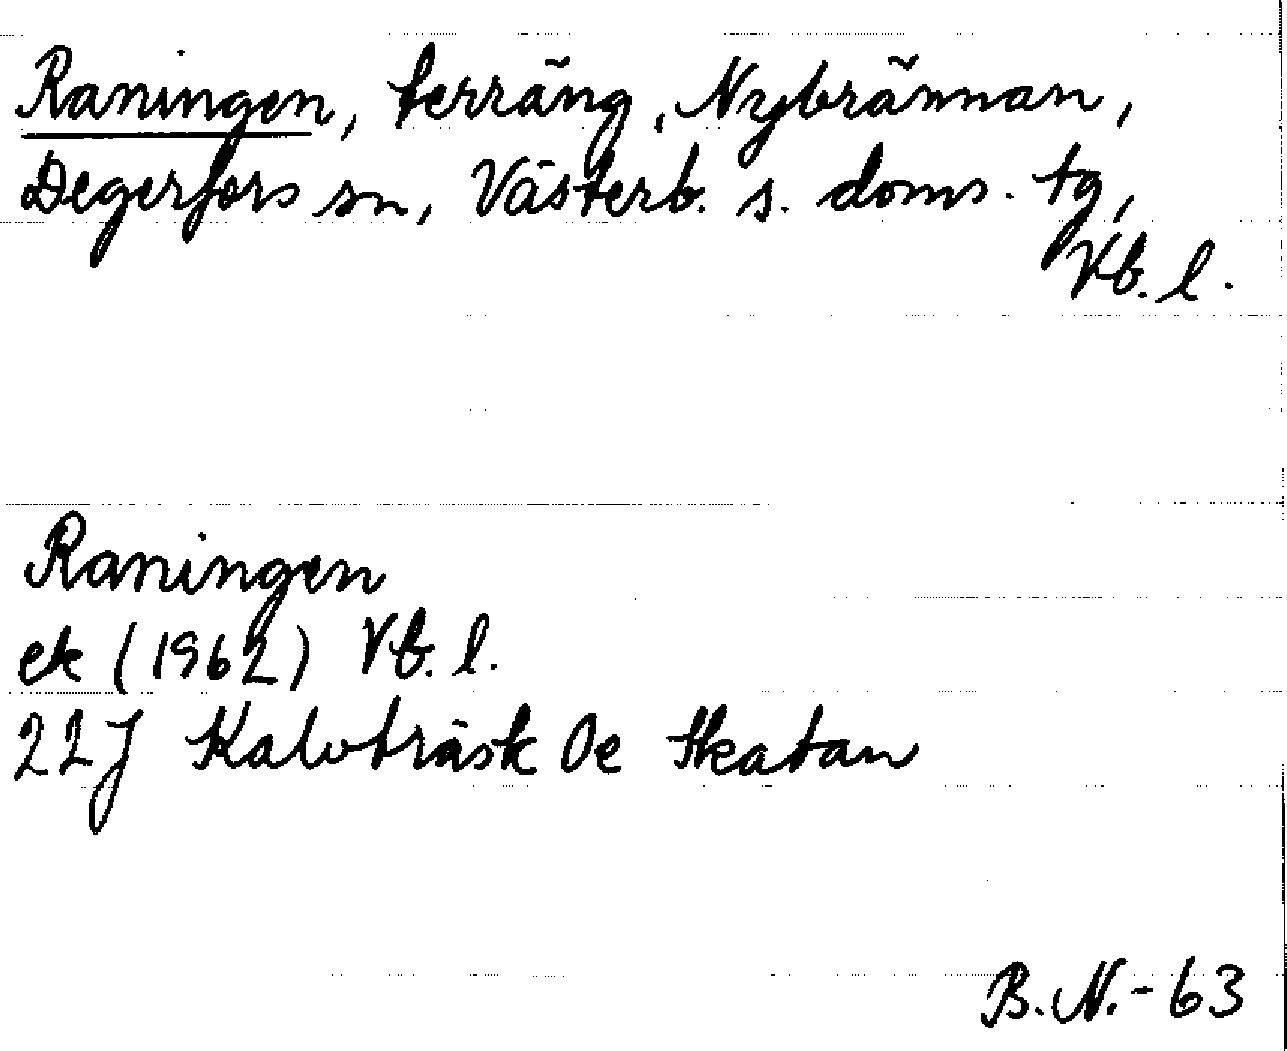 Raningen, terräng, Nybrännan,
Degerfors sn, Västerb. s. doms. tg,
Vb. l.
Raningen
ek (1962) Vb. l.
22J Kalvträsk 0e Skatan
B.N.-63